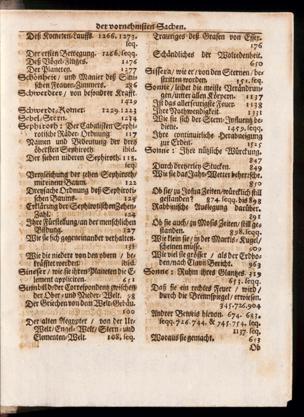 der vornehmsten Sachen.
Deß Kometen-Lauffs. 1266. 1273.
seq.
Der ersten Bewegung. 1286. seqq.
Deß Vögel-Fluges. 1176
Der Planeten. 1277
Schönheit und Manier deß
schen Frauen-Zimmers. 286
von besondrer Krafft.
1429
Schwerdt-Komet 1219. 1223
Sebel-Stern. 1234
Sephiroth: Der Cabalisten Sephi-
rothische Räder-Ordnung 117
Namen und Bedeutung der drey
öbersten Sephiroth ibid.
Der sieben niedern Sephiroth. 115.
seq.
Vergleichung der zehen Sephiroth
mit einem Baum. 122
Dreyfache Ordnung deß Sephiroti-
schen Baums. 125
Erklärung der Sephirotischen Zehen-
Zahl. 124
Ihre Fürstellung an der menschlichen
Bildung. 127
Wie sie sich gegeneinander verhalten.
131
Wie die niedern von den obern / be-
kräfftet werden ibid.
Sineser / wie sie ihren Planeten die E-
lement appliciren. 651
Sinnbild der Correspondentz zwischen
der Ober- und Nieder-Welt. 38
Der Griechen von dem Welt-Gebäu.
100
Der alten Aegypter / von der Ur-
Welt / Engel-Welt / Stern- und
Elementen-Welt. 108. seq.
Trauriges deß Grafen von
176
Schändliches der Wolredenheit.
650
/ wie er / von den Sternen / be-
stritten worden 151. seq.
Sonne / leidet die meiste Veränderun-
gen / unter allen Körpern. 1137
Ist das allerfeurigste Feuer 1138
Ihre Nothwendigkeit 1131
Wie sie sich der Stern-Influentz be-
diene. 1459. seqq.
Ihre continuirliche Herabneigung
zur Erden. 1521
Sonne: Ihre nützliche Würckung.
847
Durch dreyerley Stucken. 849
Wie sie das Jahr-Wetter beherrsche.
890
Ob sie / zu Josua Zeiten / würcklich still
gestanden? 874. seqq. bis 892
Rabbinische Auslegung darüber.
891
Ob sie auch / zu Mosis Zeiten / still ge-
standen. 898. seqq.
Wie klein sie / in der Martis-Kugel /
scheinen müsse. 909
Wie viel sie grösser / als der Erdbo-
den / nach Clavii Bericht. 963
Sonne: Ruhm ihres Glantzes. 319
651. seq.
Daß sie ein rechtes Feuer / wird /
durch die Brennspiegel / erwiesen.
345. 726. 904
Andrer Beweis hievon. 674. 683.
seqq. 726. 744. & 745. 754. seq.
1137. seq.
Woraus sie gemacht. 613
Ob